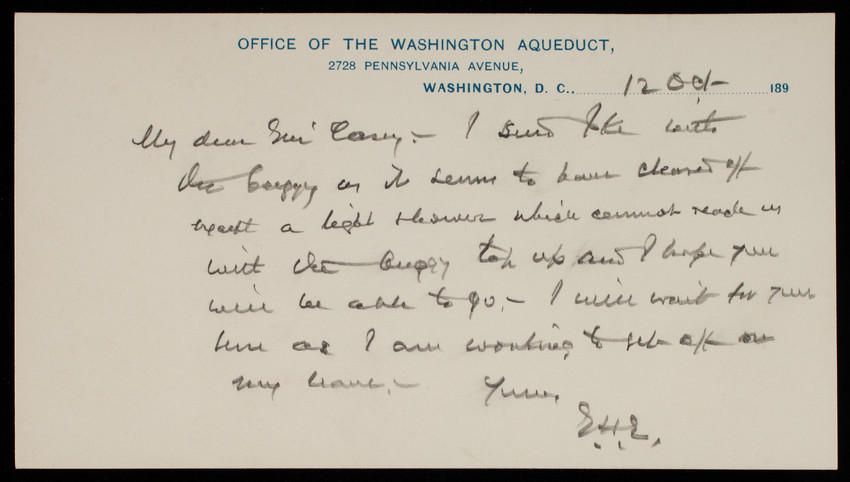 OFFICE OF THE WASHINGTON AQUEDUCT,
2728 PENNSYLVANIA AVENUE,
WASHINGTON, D. C., 12 Oct 189
My dear Casey:- I send with
the buggy as it seems to have cleared off
except a light shower which cannot reach us
with the buggy top up and I hope you
will be able to go.- I will wait for you
here as I am working to get off on
my leave.- Yours,